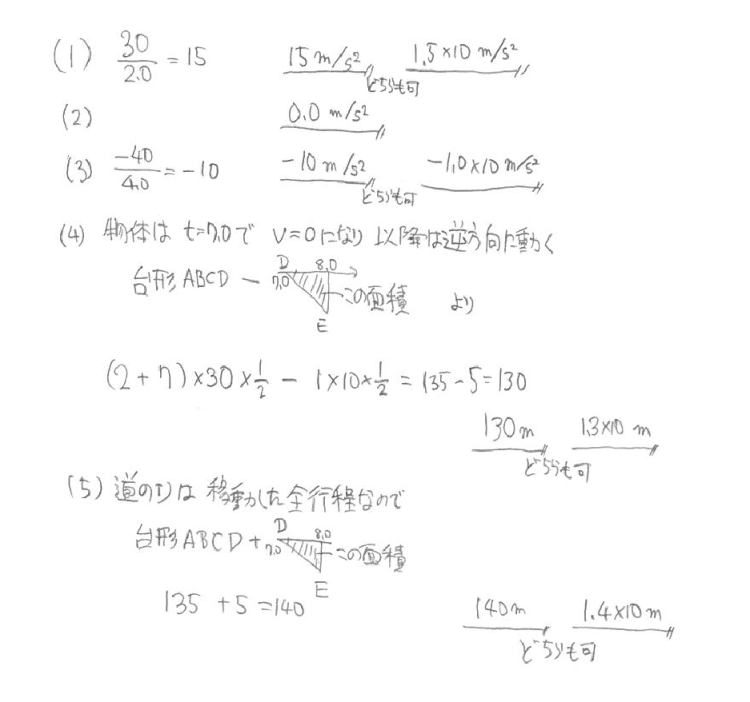 (1) 30/2.0 = 15 15 m/s² 1.5×10 m/s²
どちらも可
(2) 0.0 m/s²
(3) -40/4.0 = -10 -10 m/s² -1.0×10 m/s²
どちらも可
(4) 物体は t=7.0で v=0になり 以降は逆方向に動く
台形ABCD - D 7.0 8.0 E この面積 より
(2+7)×30×1/2 - 1×10×1/2 = 135-5=130
130m 1.3×10 m
どちらも可
(5) 道のりは 移動した全行程なので
台形ABCD + D 7.0 8.0 E この面積
135 +5 =140
140m 1.4×10 m
どちらも可